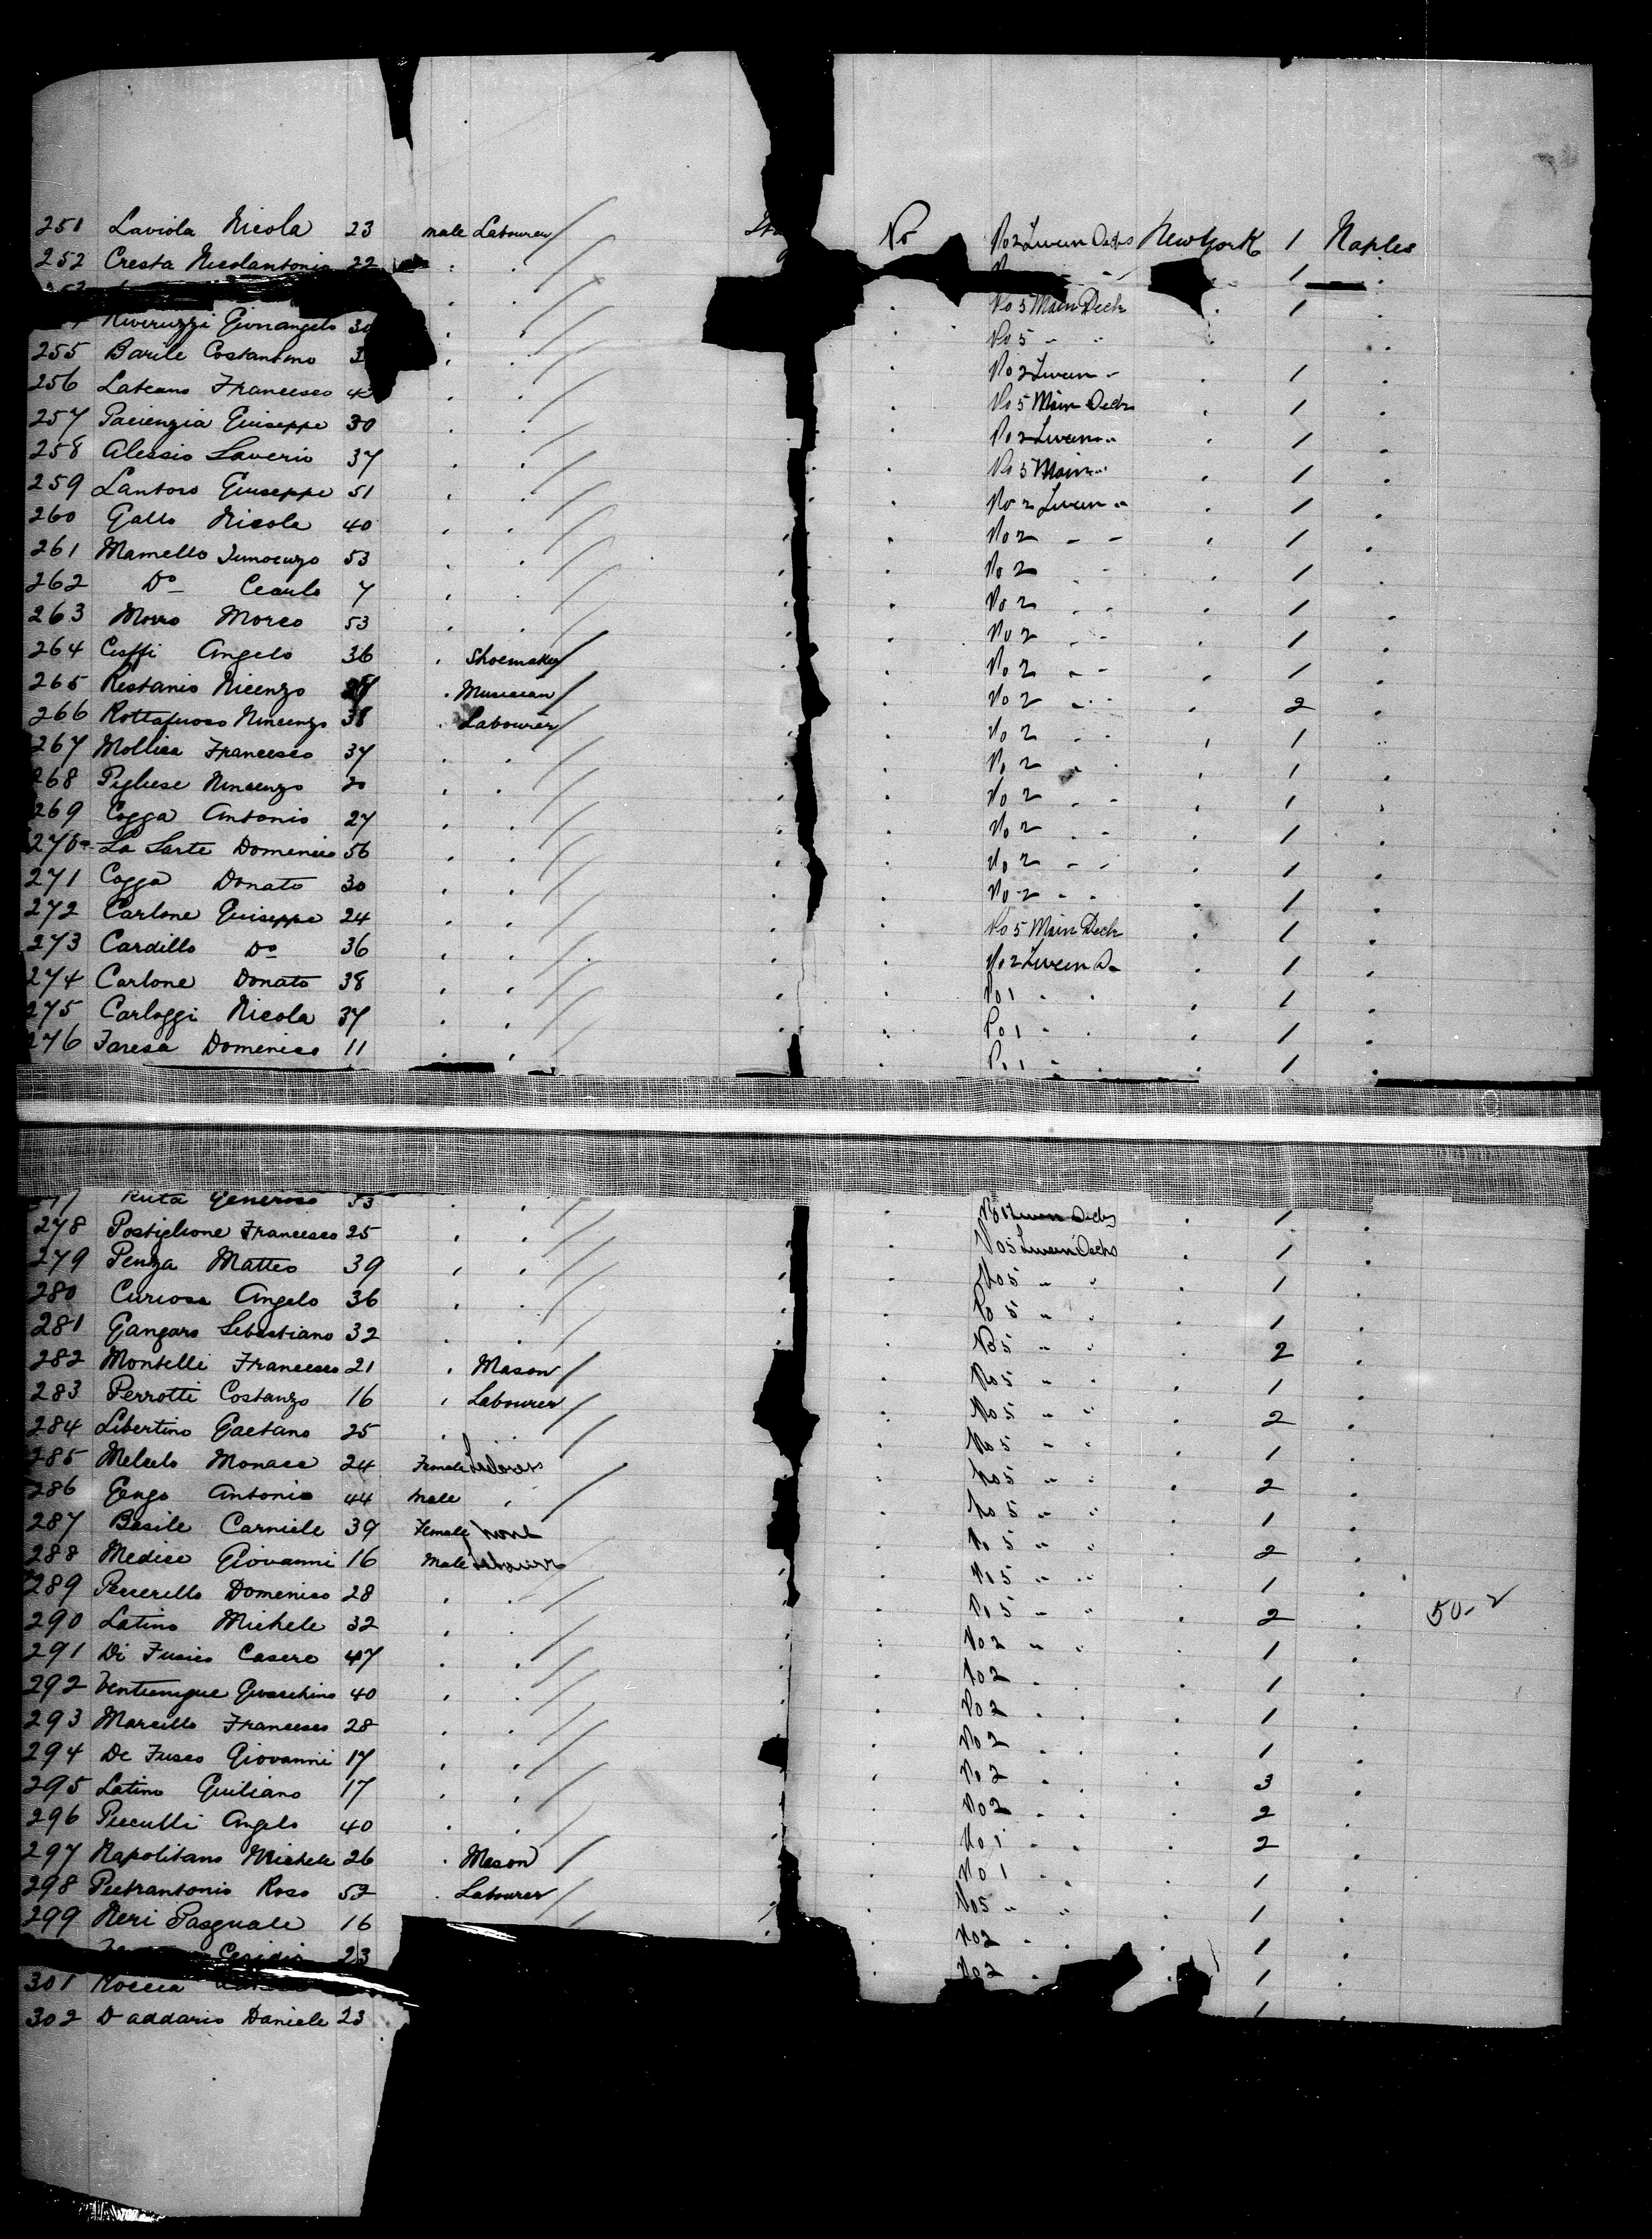 251 Laviola Nicola 23 male Labourer No No 2 Tween Decks New York 1 Naples
252 Cresta Nicolantonio 22 . . 1 .
. . No 5 Main Deck . 1 .
Riveruzzi Gionangelo 30 . . . No 5 " " .
255 Barile Costantino . . . No 2 Tween " . 1 .
256 Lateano Francesco . . . No 5 Main Decks . 1 .
257 Pacienzia Giuseppe 30 . . No 2 Tween " . 1 .
258 Alessio Saverio 37 . . . No 5 Main " . 1 .
259 Santoro Giuseppe 51 . . . No 2 Tween " . 1 .
260 Gallo Nicola 40 . . . No 2 " " . 1 .
261 Mamello Innocenzo 53 . . . No 2 " . 1 .
262 Do Cearlo 7 . . . No 2 " " . 1 .
263 Morro Morco 53 . . . No 2 " " . 1 .
264 Ceffi Angelo 36 . Shoemaker . No 2 " " . 1 .
265 Restanio Nicenzo . Musician . No 2 " " . 2 .
266 Rottafuoso Nincenzo 38 . Labourer . No 2 " " . 1 "
267 Mollica Francesco 37 . . . No 2 " . 1 .
268 Pigliese Nincenzo 20 . . . No 2 " " . 1 .
269 Cogga Antonio 27 . . . No 2 " " . 1 .
270 La Sarte Domenico 56 . . . No 2 " " . 1 .
271 Cogga Donato 30 . . . No 2 " " . 1 .
272 Carlone Giuseppe 24 . . . No 5 Main Deck . 1 .
273 Cardillo Do 36 . . . No 2 Tween D . 1 .
274 Carlone Donato 38 . . . No 1 " " . 1 .
275 Carloggi Nicola 37 . . . No 1 " " . 1 .
276 Faresa Domenico 11 . . . No 1 " . . 1 .
Ruta Generoso 53 . . . Decks . 1 .
278 Postiglione Francesco 25 . . . No 5 Tween Decks . 1 .
279 Penza Matteo 39 . . . No 5 " " 1 .
280 Curiosa Angelo 36 . . No 5 " " . 1 .
281 Gangaro Sebastiano 32 . . . No 5 " " 2 .
282 Montelli Francesco 21 . Mason . No 5 " " . 1 .
283 Perrotti Costanzo 16 . Labourer . No 5 " " . 2 .
284 Libertino Gaetano 25 . . . No 5 " " . 1 .
285 Melcelo Monaca 24 Female . No 5 " " . 2 .
286 Gengo Antonio 44 Male . No 5 " " 1 .
287 Basile Carniele 39 Female none No 5 " " . 2 .
288 Medice Giovanni 16 Male Labourer . No 5 " " 1 .
289 Pecerillo Domenico 28 . . No 5 " " . 2 . 50-2
290 Latino Michele 32 . . No 2 " " 1 .
291 Di Fusico Casero 47 . . . No 2 . . 1 .
292 Ventunque Gioachino 40 . . . No 2 . . . 1 .
293 Marcillo Francesco 28 . . No 2 . . 1 .
294 De Fusco Giovanni 17 . . . No 2 . . 3 .
295 Latino Giuliano 17 . . No 2 . . . 2 .
296 Pecculli Angelo 40 . . No 1 . . . 2 .
297 Napolitano Michele 26 . Mason No 1 . . 1 .
298 Pietrantonio Roso 52 . Labourer . No 5 " " . 1 .
299 Neri Pasquale 16 . No 2 . . . 1 .
Cesidio 23 . No 2 . . 1 .
301 Roccia 1 .
302 D addario Daniele 23